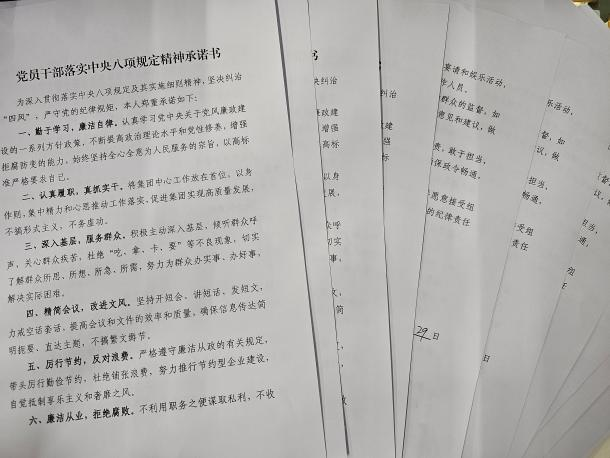 党员干部落实中央八项规定精神承诺书
为深入贯彻落实中央八项规定及其实施细则精神，坚决纠治
“四风”，严守党的纪律规矩，本人郑重承诺如下：
一、勤于学习，廉洁自律。认真学习党中央关于党风廉政建
设的一系列方针政策，不断提高政治理论水平和党性修养，增强
拒腐防变的能力，始终坚持全心全意为人民服务的宗旨，以高标
准严格要求自己。
二、认真履职，真抓实干。将集团中心工作放在首位，以身
作则，集中精力和心思推动工作落实，促进集团实现高质量发展，
不搞形式主义，不务虚功。
三、深入基层，服务群众。积极主动深入基层，倾听群众呼
声，关心群众疾苦，杜绝“吃、拿、卡、要”等不良现象，切实
了解群众所思、所想、所急、所需，努力为群众办实事、办好事，
解决实际困难。
四、精简会议，改进文风。坚持开短会、讲短话、发短文，
力戒空话套话，提高会议和文件的效率和质量，确保信息传达简
明扼要、直达主题，不搞繁文缛节。
五、厉行节约，反对浪费。严格遵守廉洁从政的有关规定，
带头厉行勤俭节约，杜绝铺张浪费，努力推行节约型企业建设，
自觉抵制享乐主义和奢靡之风。
六、廉洁从业，拒绝腐败。不利用职务之便谋取私利，不收
书
决纠治
政建
增强
高标
以身
发展，
众呼
切实
事，
文，
简
定，
设，
收
纠治
宴请和娱乐活动，
作人员。
群众的监督，如
意见和建议，做
责，敢于担当，
保政令畅通。
愿意接受组
的纪律责任
29日
乐活动，
督，如
议，做
担当，
畅通。
受组
责任
日